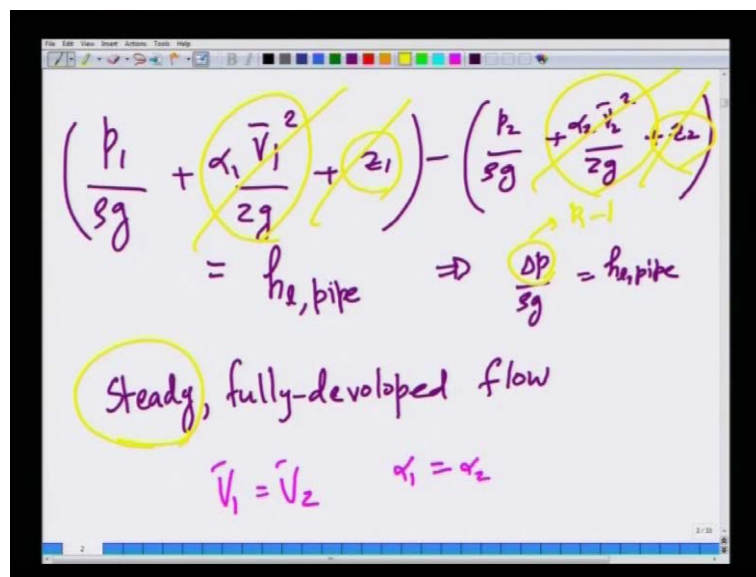 File Edit View Insert Actions Tools Help
(p₁/ρg + α₁ V̄₁²/2g + z₁) − (p₂/ρg + α₂ V̄₂²/2g + z₂)
R-1
= hℓ,pipe ⇒ Δp/ρg = hℓ,pipe
Steady, fully-devoloped flow
V̄₁ = V̄₂ α₁ = α₂
2